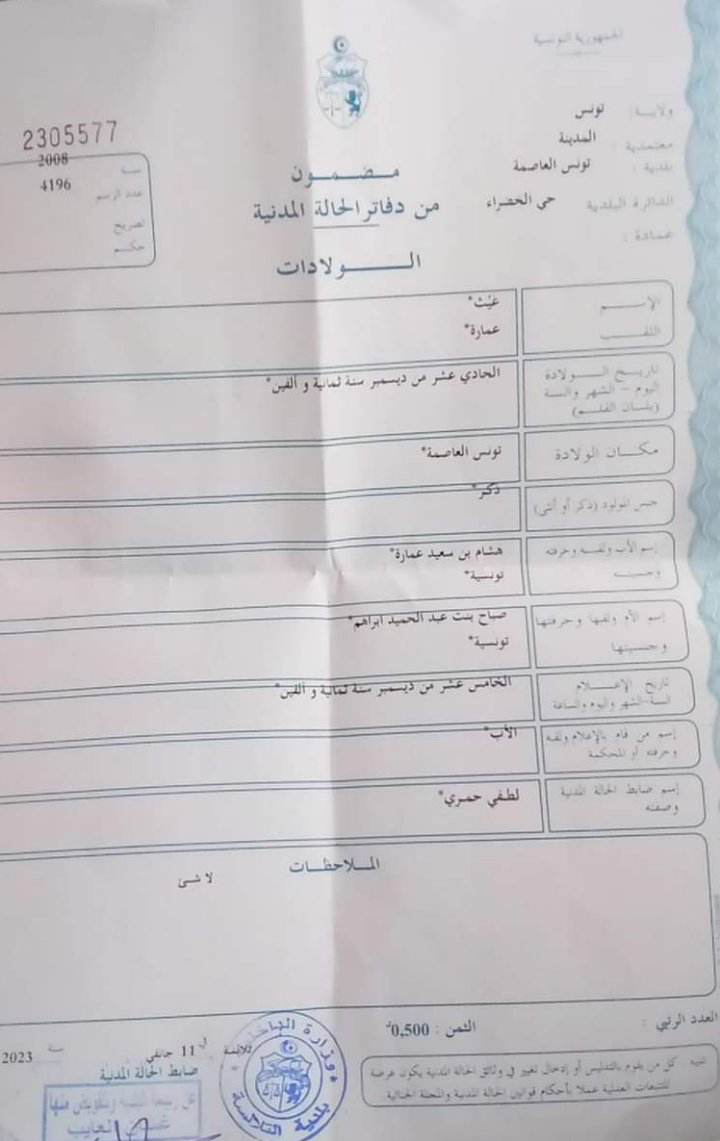 الجمهورية التونسية
ولاية : تونس
معتمدية : المدينة
بلدية : تونس العاصمة
الدائرة البلدية حي الخضراء
عمادة :
2305577
سنة 2008
عدد الرسم 4196
تصريح
حكم
مضمون
من دفاتر الحالة المدنية
الولادات
الإسم غيث*
اللقب عمارة*
تاريخ الولادة
اليوم - الشهر والسنة
(بلسان القلم)
الحادي عشر من ديسمبر سنة ثمانية و ألفين*
مكان الولادة تونس العاصمة*
جنس المولود (ذكر أو أنثى) ذكر*
إسم الأب ولقبه وحرفته هشام بن سعيد عمارة*
وجنسيته تونسية*
إسم الأم ولقبها وحرفتها صباح بنت عبد الحميد ابراهم*
وجنسيتها تونسية*
تاريخ الإعلام
السنة-الشهر واليوم والساعة
الخامس عشر من ديسمبر سنة ثمانية و ألفين*
إسم من قام بالإعلام ولقبه
وحرفته أو المحكمة
الأب*
إسم ضابط الحالة المدنية
وصفته
لطفي حمري*
الملاحظات
لا شئ
العدد الرتبي :
الثمن : 0,500د
تنبيه كل من يقوم بالتدليس أو إدخال تغيير في وثائق الحالة المدنية يكون عرضة
للتتبعات العدلية عملا بأحكام قوانين الحالة المدنية والمجلة الجنائية
في 11 جانفي سنة 2023
ضابط الحالة المدنية
وزارة الداخلية
بلدية